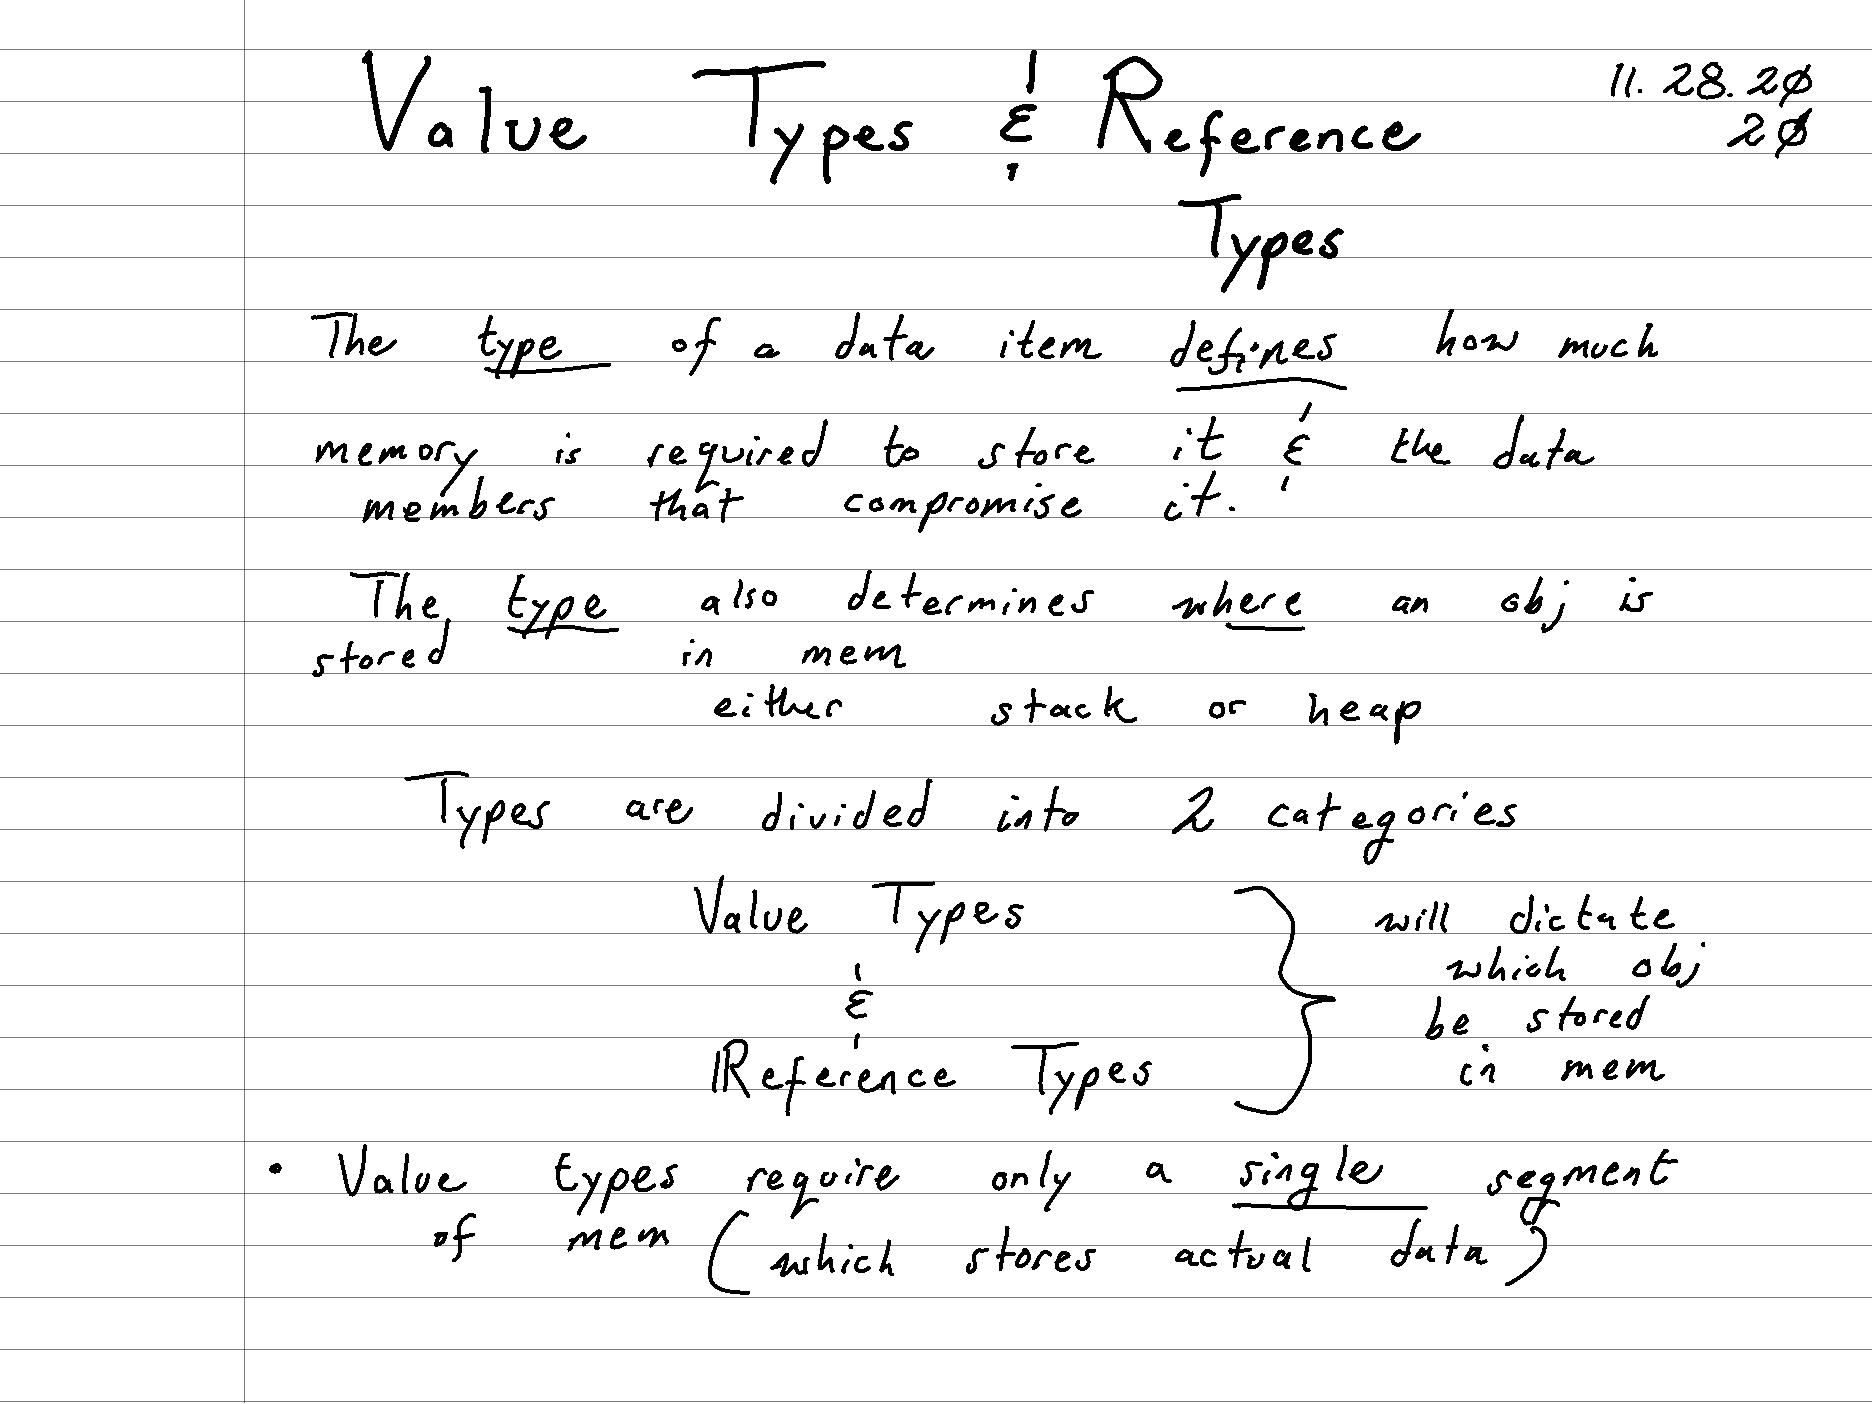 Value Types & Reference
Types
11.28.20
20
The type of a data item defines how much
memory is required to store it & the data
members that compromise it.
The type also determines where an obj is
stored in mem
either stack or heap
Types are divided into 2 categories
Value Types
&
Reference Types
will dictate
which obj
be stored
in mem
• Value types require only a single segment
of mem (which stores actual data)